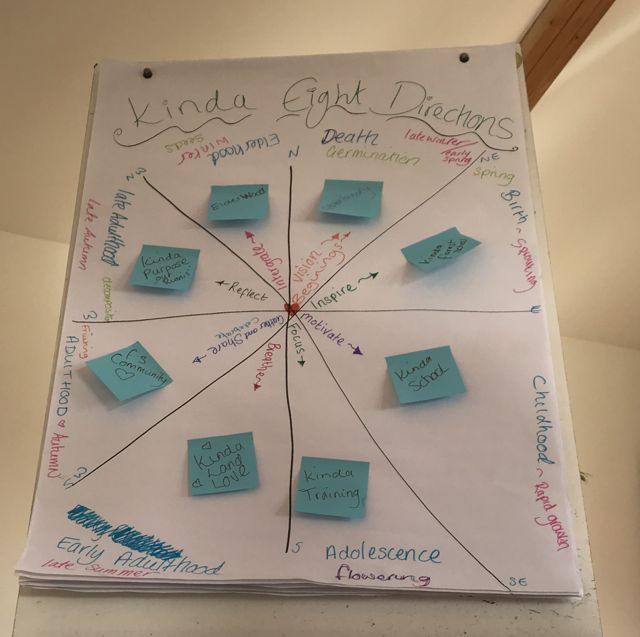 Kinda Eight Directions
Seeds
Winter
Elderhood
N
Death
Germination
late winter/
early spring
NE
Spring
Birth ~ Sprouting
Late Autumn
late Adulthood
decomposition
N
W
Elderwood
Kinda
Purpose
Intergrate
Vision
Beginings
Inspire
Reflect
E
W
Fruiting
ADULTHOOD
Autumn
FS
Community
Gather and Share
Celebrate
Breathe
Focus
motivate
Kinda
School
Childhood ~ Rapid growth
Kinda
Land
Love
Kinda
Training
SW
S
SE
Early Adulthood
late summer
Adolescence
flowering